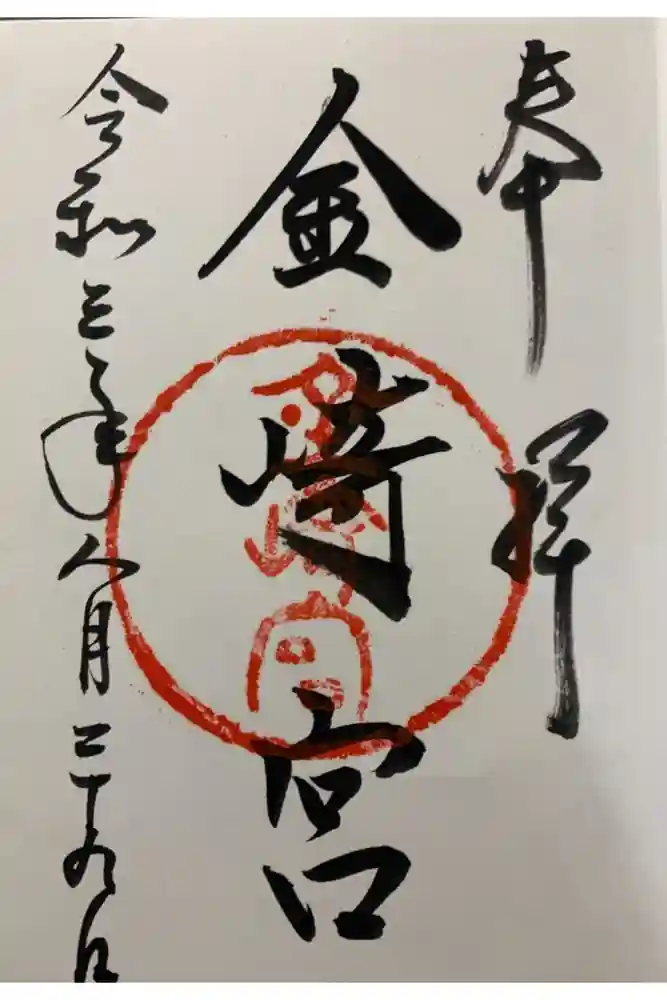 奉拝
金崎宮
令和三年八月二十九日